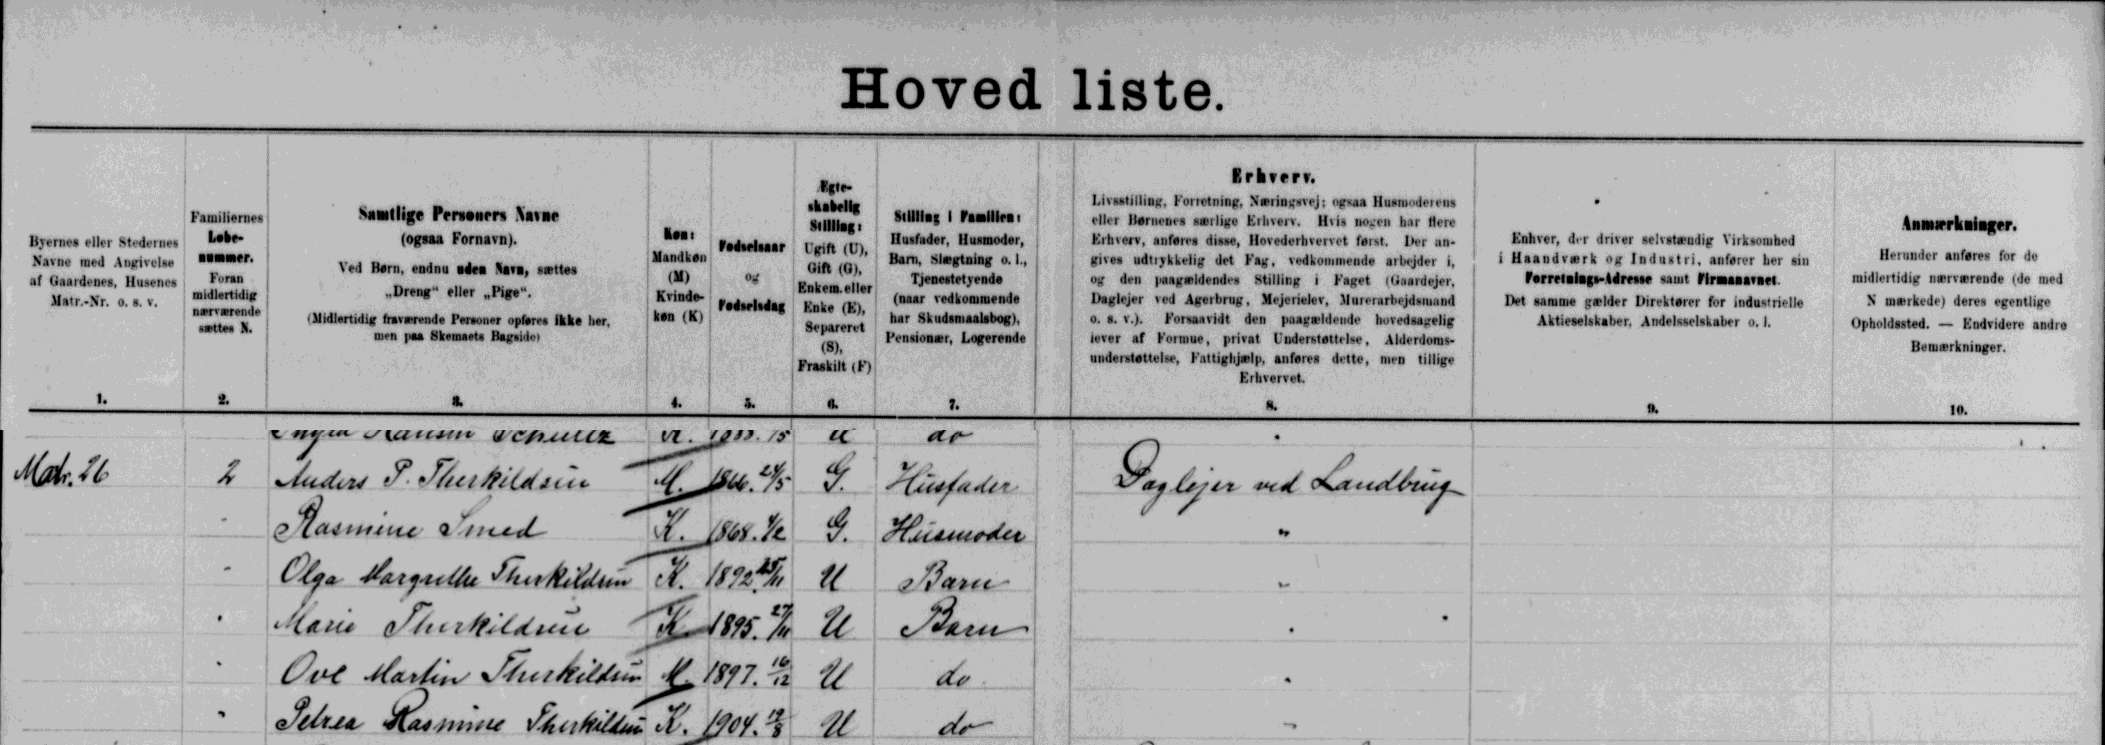 Hoved liste.
Byernes eller Stedernes
Navne med Angivelse
af Gaardenes, Husenes
Matr.-Nr. o. s. v.
1.
Familiernes
Løbe-
nummer.
Foran
midlertidig
nærværende
sættes N.
2.
Samtlige Personers Navne
(ogsaa Fornavn).
Ved Børn, endnu uden Navn, sættes
„Dreng“ eller „Pige“.
(Midlertidig fraværende Personer opføres ikke her,
men paa Skemaets Bagside)
3.
Køn:
Mandkøn
(M)
Kvinde-
køn (K)
4.
Fødselsaar
og
Fødselsdag
5.
Ægte-
skabelig
Stilling:
Ugift (U),
Gift (G),
Enkem. eller
Enke (E),
Separeret
(S),
Fraskilt (F)
6.
Stilling i Familien:
Husfader, Husmoder,
Barn, Slægtning o. l.,
Tjenestetyende
(naar vedkommende
har Skudsmaalsbog),
Pensionær, Logerende
7.
Erhverv.
Livsstilling, Forretning, Næringsvej; ogsaa Husmoderens
eller Børnenes særlige Erhverv. Hvis nogen har flere
Erhverv, anføres disse, Hovederhvervet først. Der an-
gives udtrykkelig det Fag, vedkommende arbejder i,
og den paagældendes Stilling i Faget (Gaardejer,
Daglejer ved Agerbrug, Mejerielev, Murerarbejdsmand
o. s. v.). Forsaavidt den paagældende hovedsagelig
lever af Formue, privat Understøttelse, Alderdoms-
understøttelse, Fattighjælp, anføres dette, men tillige
Erhvervet.
8.
Enhver, der driver selvstændig Virksomhed
i Haandværk og Industri, anfører her sin
Forretnings-Adresse samt Firmanavnet.
Det samme gælder Direktører for industrielle
Aktieselskaber, Andelsselskaber o. l.
9.
Anmærkninger.
Herunder anføres for de
midlertidig nærværende (de med
N mærkede) deres egentlige
Opholdssted. — Endvidere andre
Bemærkninger.
10.
Hansen Schultz K. U do
Matr. 26 2 Anders P. Therkildsen M. 1866. 24/5 G. Husfader Daglejer ved Landbrug
" Rasmine Smed K. 1868. G. Husmoder "
" Olga Margrethe Therkildsen K. 1892. U Barn "
" Marie Therkildsen K. 1895. 27/11 U Barn "
" Ove Martin Therkildsen M. 1897. 16/12 U do "
" Petrea Rasmine Therkildsen K. 1904. 19/8 U do "